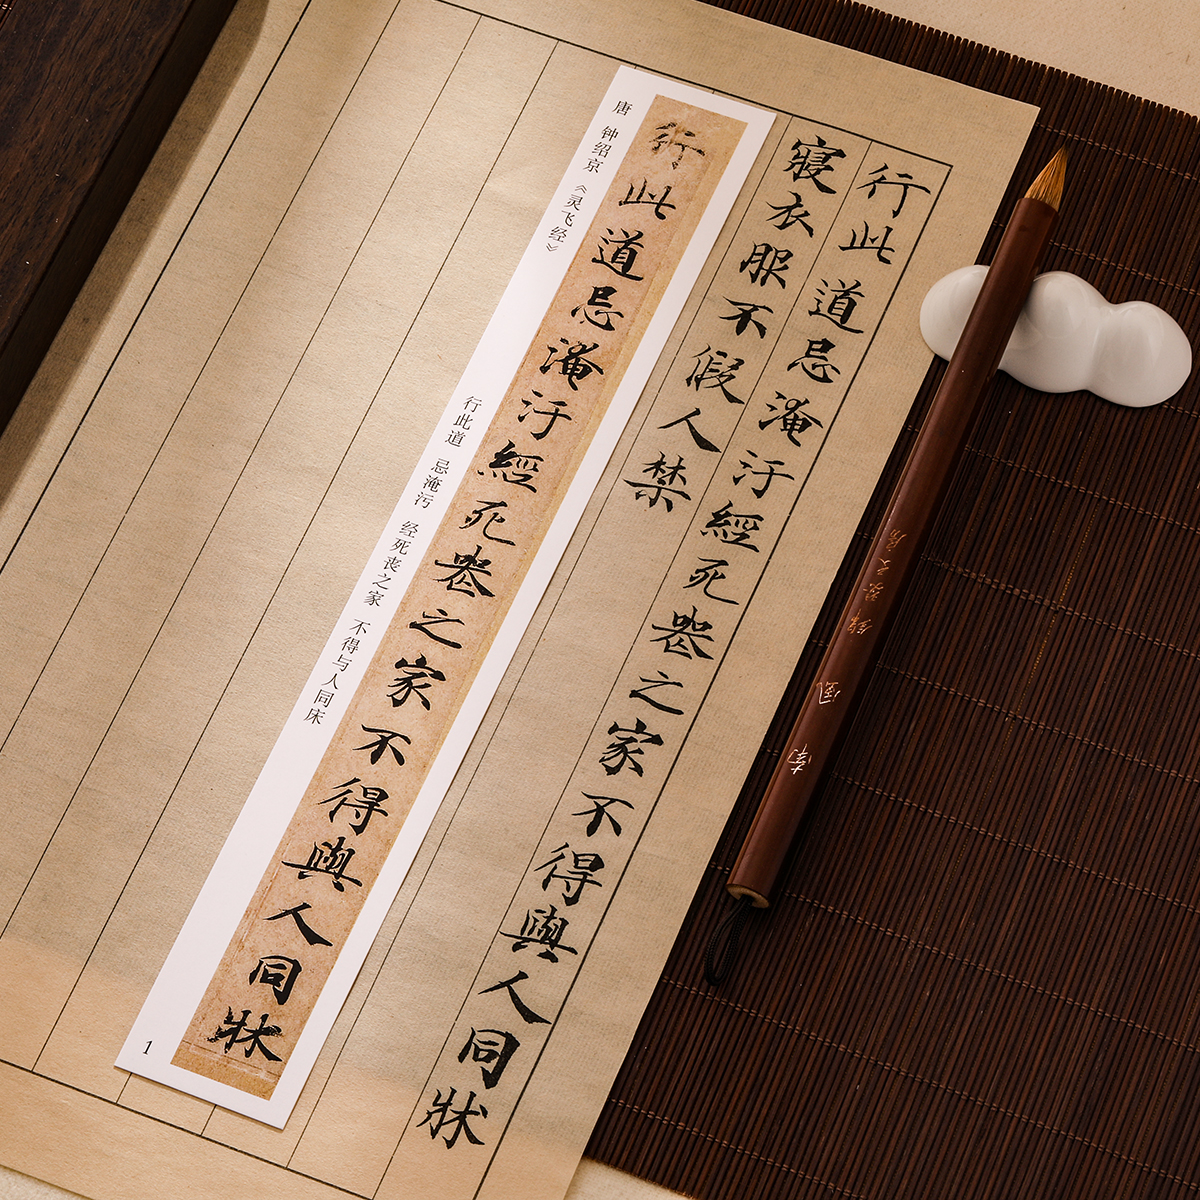 行此道忌淹汙經死喪之家不得與人同牀
寢衣服不假人禁
行此道忌淹汙經死喪之家不得與人同牀
唐 钟绍京《灵飞经》
行此道 忌淹污 经死丧之家 不得与人同床
1